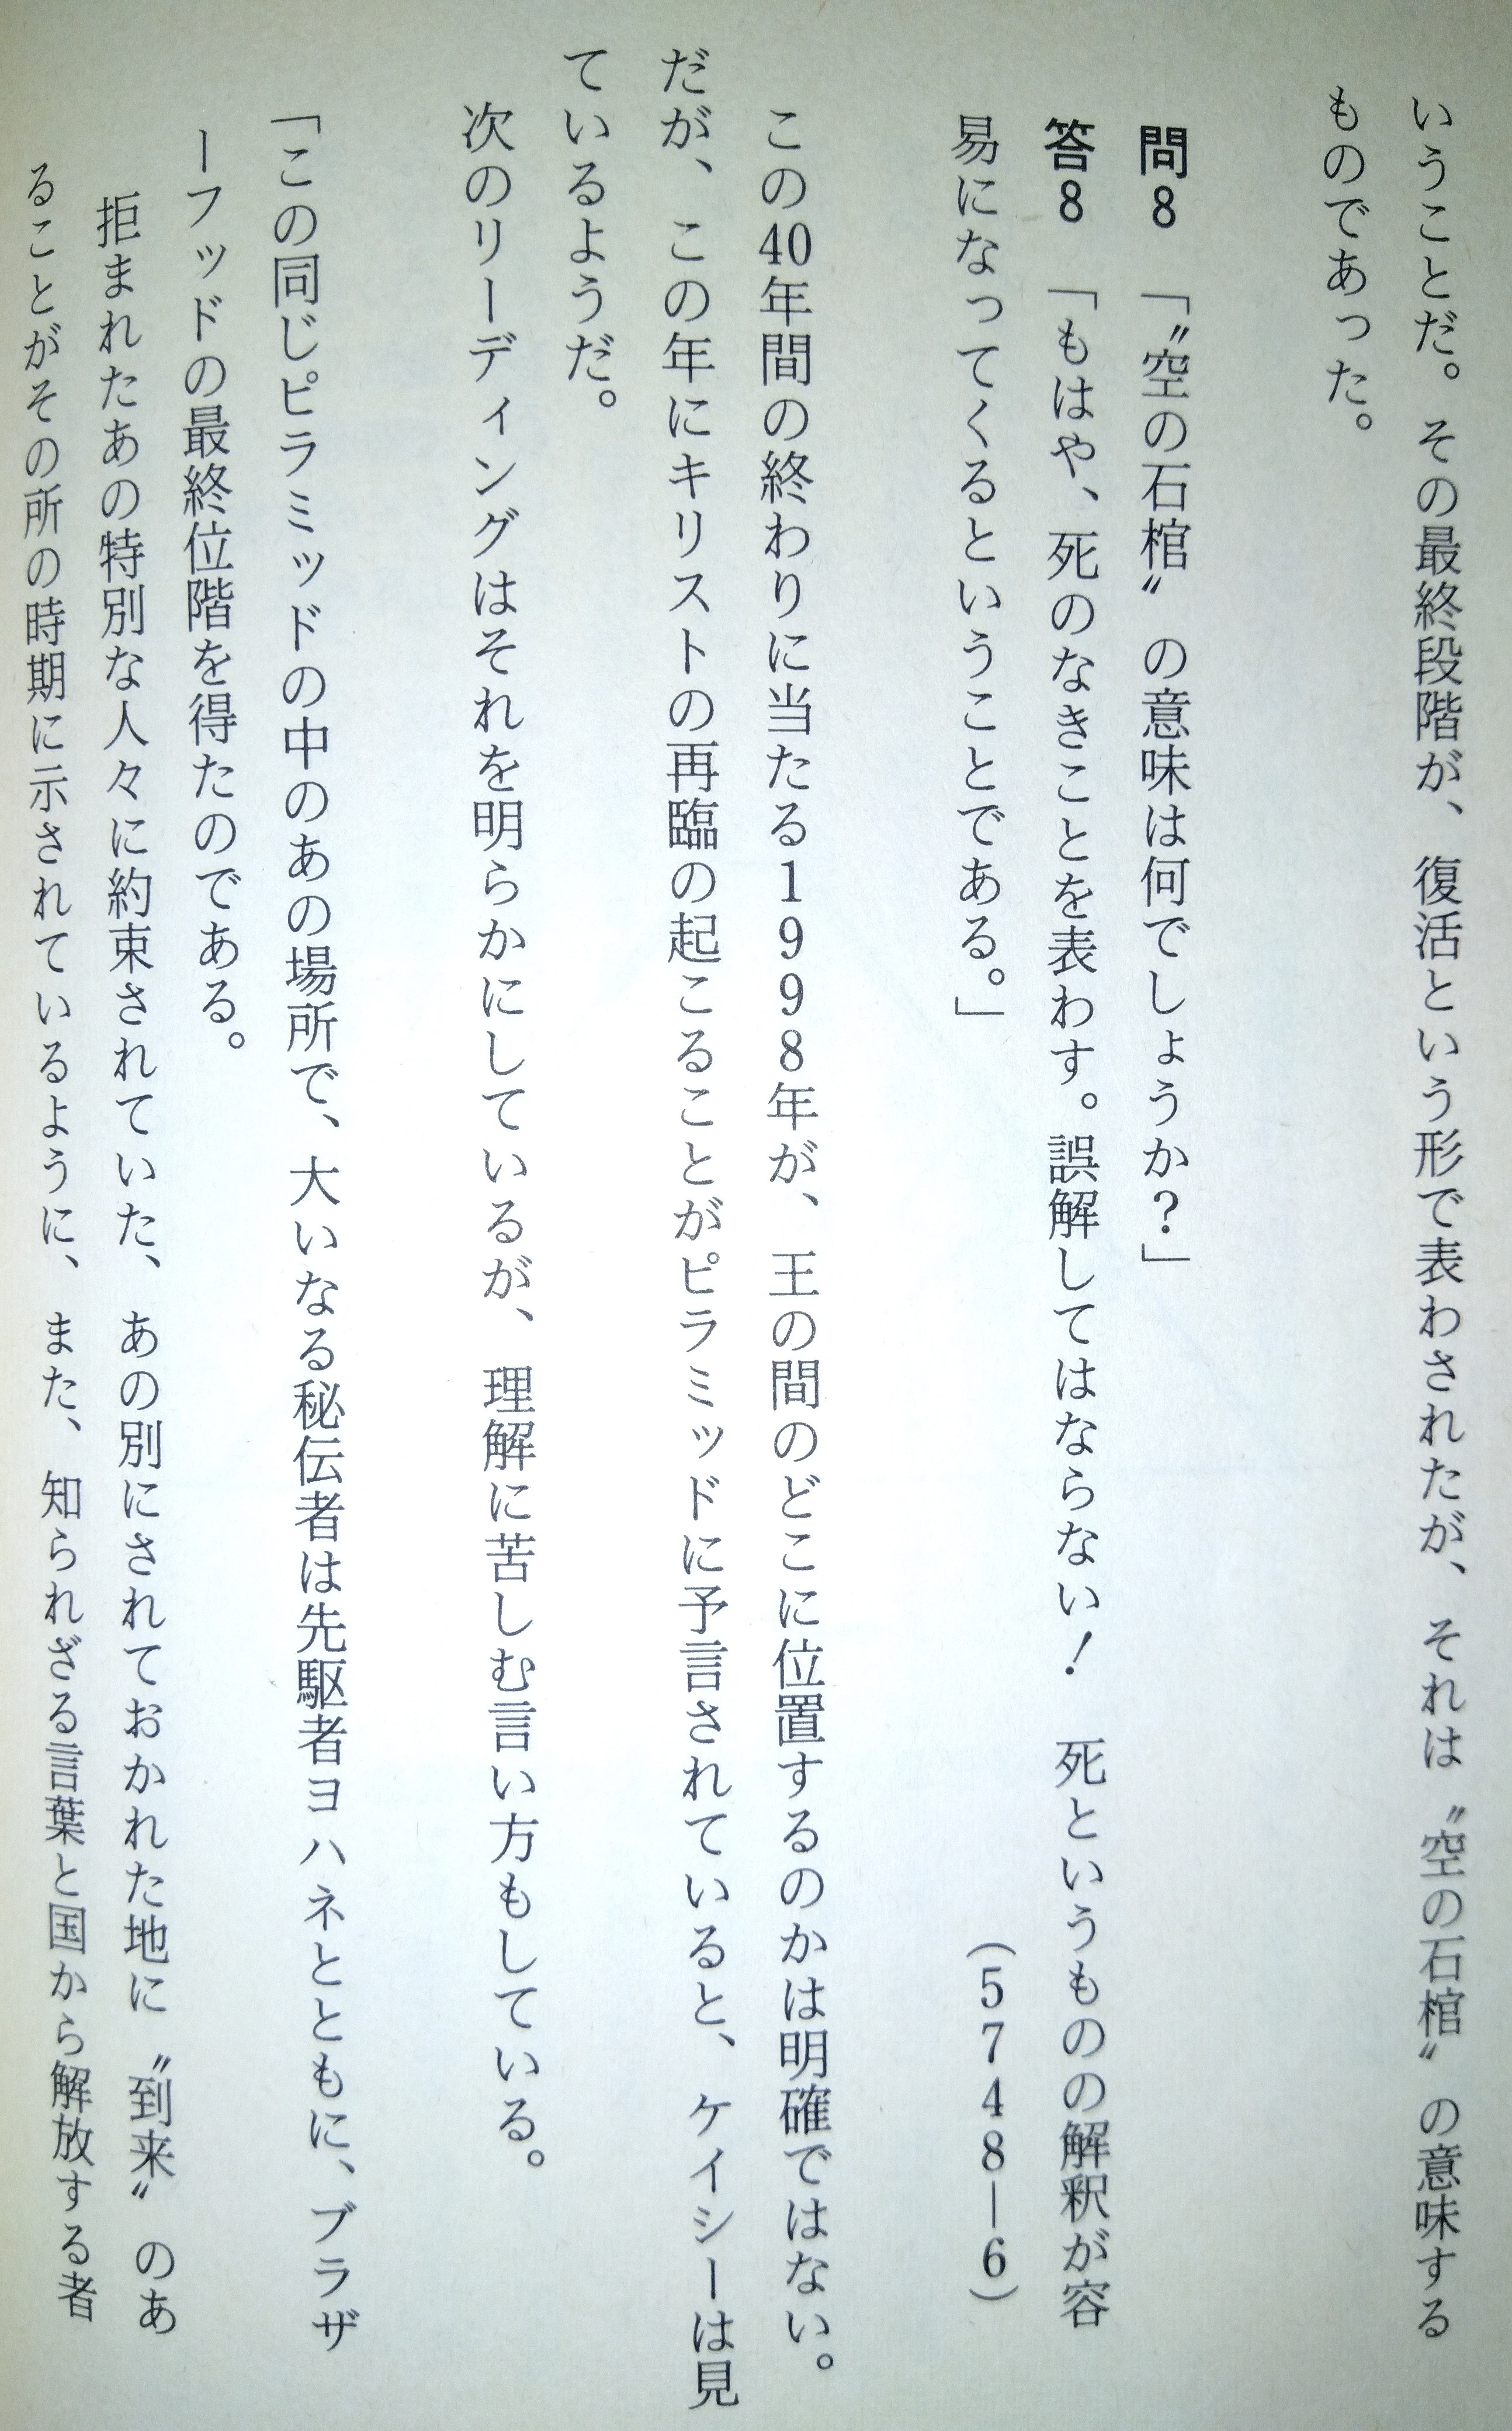 いうことだ。その最終段階が、復活という形で表わされたが、それは〝空の石棺〟の意味する
ものであった。
問8 「〝空の石棺〟の意味は何でしょうか？」
答8 「もはや、死のなきことを表わす。誤解してはならない！ 死というものの解釈が容
易になってくるということである。」 (5748―6)
この40年間の終わりに当たる1998年が、王の間のどこに位置するのかは明確ではない。
だが、この年にキリストの再臨の起こることがピラミッドに予言されていると、ケイシーは見
ているようだ。
次のリーディングはそれを明らかにしているが、理解に苦しむ言い方もしている。
「この同じピラミッドの中のあの場所で、大いなる秘伝者は先駆者ヨハネとともに、ブラザ
ーフッドの最終位階を得たのである。
拒まれたあの特別な人々に約束されていた、あの別にされておかれた地に〝到来〟のあ
ることがその所の時期に示されているように、また、知られざる言葉と国から解放する者